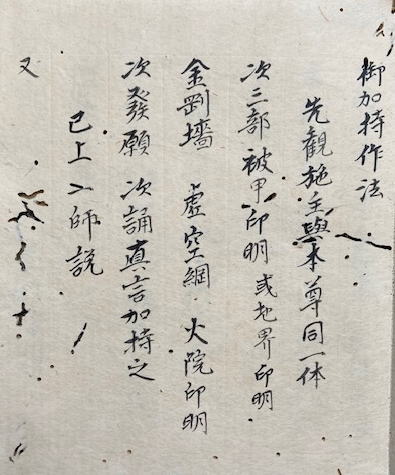 御加持作法
先観施主與本尊同一体
次三部被甲印明或地界印明
金剛墻 虚空網 火院印明
次發願 次誦真言加持之
已上二師説
又